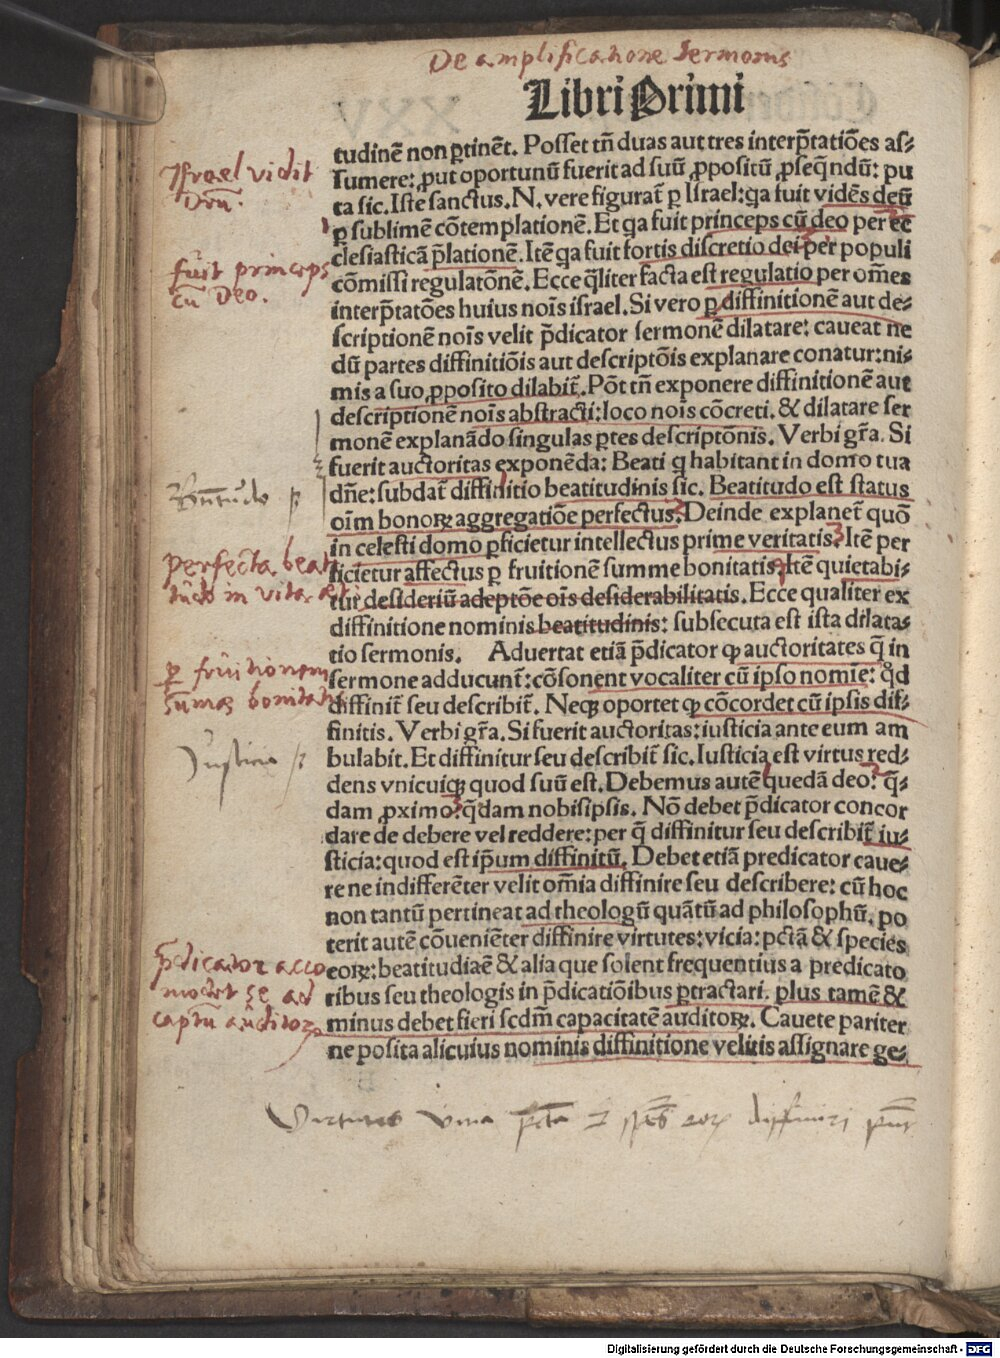 De amplificatione Sermonis
Libri Primi
tudinē non ꝑtinēt. Posset tn̄ duas aut tres interp̄tatiōes as⸗
sumere: ꝓut oportunū fuerit ad suū ꝓpositū ꝓseq̄ndū: pu
ta sic. Iste sanctus. N. vere figurat̄ ꝑ Israel: qa fuit vidēs deū
ꝑ sublimē cōtemplationē. Et qa fuit princeps cū deo per ec
clesiasticā p̄lationē. Itē qa fuit fortis discretio dei per populi
cōmissi regulatōnē. Ecce q̄liter facta est regulatio per om̄es
interp̄tatōes huius noīs israel. Si vero ꝑ diffinitionē aut de⸗
scriptionē noīs velit p̄dicator sermonē dilatare: caueat ne
dū partes diffinitiōis aut descriptōis explanare conatur: ni⸗
mis a suo ꝓposito dilabit̄. Pōt tn̄ exponere diffinitionē aut
descriptionē noīs abstracti: loco noīs cōcreti. & dilatare ser
monē explanādo singulas ꝑtes descriptōnis. Verbi gr̄a. Si
fuerit auctoritas exponēda: Beati q habitant in domo tua
dn̄e: subdat̄ diffinitio beatitudinis sic. Beatitudo est status
oīm bonoꝝ aggregatiōe perfectus. Deinde explanet̄ quō
in celesti domo ꝑficietur intellectus prime veritatis. Itē per
ficietur affectus ꝑ fruitionē summe bonitatis. Itē quietabi⸗
tur desideriū adeptōe oīs desiderabilitatis. Ecce qualiter ex
diffinitione nominis beatitudinis: subsecuta est ista dilata⸗
tio sermonis. Aduertat etiā p̄dicator ꝙ auctoritates q̄ in
sermone adducunt̄: cōsonent vocaliter cū ipso nomīe: qd̄
diffinit̄ seu describit̄. Neqꝫ oportet ꝙ cōcordet cū ipsis dif⸗
finitis. Verbi gr̄a. Si fuerit auctoritas: iusticia ante eum am
bulabit. Et diffinitur seu describit̄ sic. Iusticia est virtus red⸗
dens vnicuiqꝫ quod suū est. Debemus autē quedā deo: q̄⸗
dam ꝓximo: q̄dam nobisipsis. Nō debet p̄dicator concor
dare de debere vel reddere: per q̄ diffinitur seu describit̄ iu⸗
sticia: quod est ip̄um diffinitū. Debet etiā predicator caue⸗
re ne indifferēter velit om̄ia diffinire seu describere: cū hoc
non tantū pertineat ad theologū quātū ad philosophū. po
terit autē cōueniēter diffinire virtutes: vicia: pctā & species
eoꝝ: beatitudiaē & alia que solent frequentius a predicato
ribus seu theologis in p̄dicatiōibus ꝑtractari. plus tamē &
minus debet fieri scdm̄ capacitatē auditoꝝ. Cauete pariter
ne posita alicuius nominis diffinitione velitis assignare ge⸗
Israel vidit
Dm̄.
fuit princeps
cū Deo.
perfecta beati
tudo in vita
ꝑ fruitionem
sum̄ae bonitatis
Justicia
p̄dicator acco
modet se ad
captū auditoꝝ
Virtutes vicia pctā & spēs eoꝝ diffiniri pn̄t
Digitalisierung gefördert durch die Deutsche Forschungsgemeinschaft - DFG